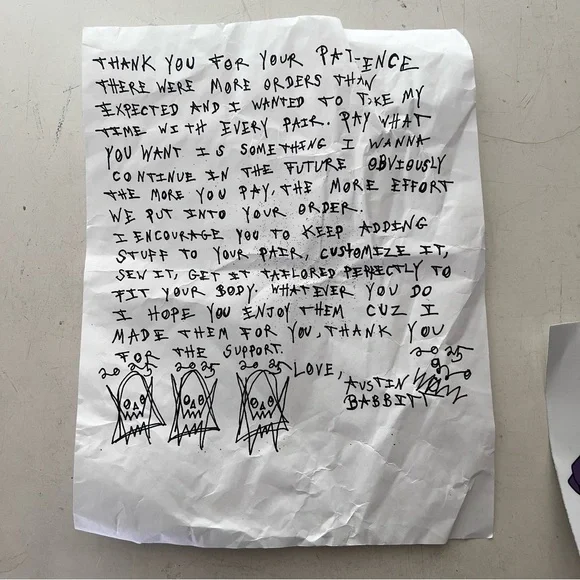 THANK YOU FOR YOUR PATIENCE
THERE WERE MORE ORDERS THAN
EXPECTED AND I WANTED TO TAKE MY
TIME WITH EVERY PAIR. PAY WHAT
YOU WANT IS SOMETHING I WANNA
CONTINUE IN THE FUTURE OBVIOUSLY
THE MORE YOU PAY, THE MORE EFFORT
WE PUT INTO YOUR ORDER.
I ENCOURAGE YOU TO KEEP ADDING
STUFF TO YOUR PAIR, CUSTOMIZE IT,
SEW IT, GET IT TAILORED PERFECTLY TO
FIT YOUR BODY. WHATEVER YOU DO
I HOPE YOU ENJOY THEM CUZ I
MADE THEM FOR YOU, THANK YOU
FOR THE SUPPORT.
2025 2025 2025 LOVE,
AUSTIN
BABBITT
2025